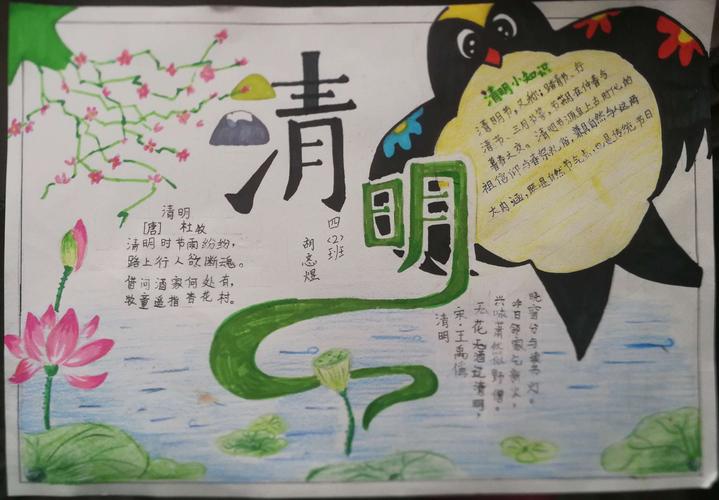 清明
清明小知识
清明节，又称：踏青节、行
清节、三月节等，节期在仲春与
暮春之交。清明节源自上古时代的
祖信仰与春祭礼俗，兼具自然与人文两
大内涵，既是自然节气点，也是传统节日
清明
[唐] 杜牧
清明时节雨纷纷，
路上行人欲断魂。
借问酒家何处有，
牧童遥指杏花村。
四(2)班
胡志煜
清明
宋·王禹偁
无花无酒过清明，
兴味萧然似野僧。
昨日邻家乞新火，
晓窗分与读书灯。